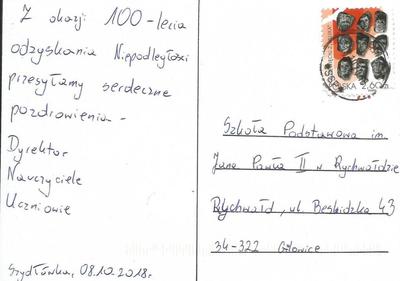 Z okazji 100-lecia
odzyskania Niepodległości
przesyłamy serdeczne
pozdrowienia -
Dyrektor
Nauczyciele
Uczniowie
Szydłówka, 08.10.2018r.
2,60 zł
Szkoła Podstawowa im.
Jana Pawła II w Rychwałdzie
Rychwałd, ul. Beskidzka 43
34-322 Gilowice